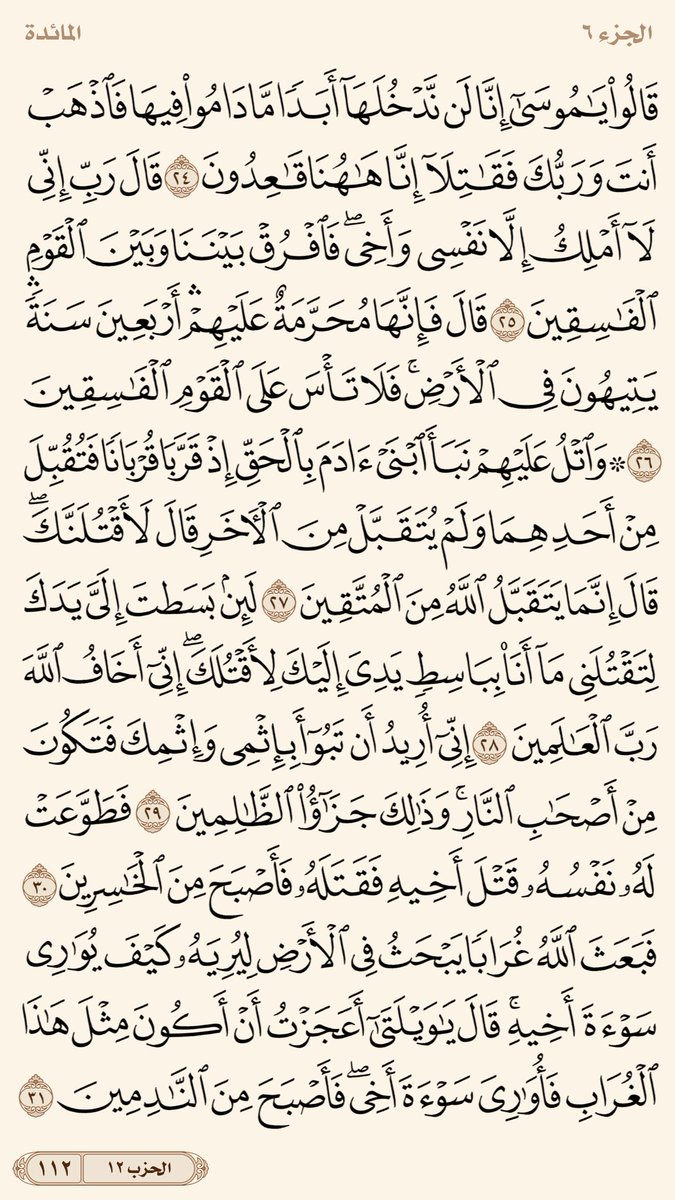 الجزء ٦ المائدة
قَالُوا۟ يَـٰمُوسَىٰٓ إِنَّا لَن نَّدْخُلَهَآ أَبَدًا مَّا دَامُوا۟ فِيهَا فَٱذْهَبْ
أَنتَ وَرَبُّكَ فَقَـٰتِلَآ إِنَّا هَـٰهُنَا قَـٰعِدُونَ ٢٤ قَالَ رَبِّ إِنِّى
لَآ أَمْلِكُ إِلَّا نَفْسِى وَأَخِى ۖ فَٱفْرُقْ بَيْنَنَا وَبَيْنَ ٱلْقَوْمِ
ٱلْفَـٰسِقِينَ ٢٥ قَالَ فَإِنَّهَا مُحَرَّمَةٌ عَلَيْهِمْ ۛ أَرْبَعِينَ سَنَةً ۛ
يَتِيهُونَ فِى ٱلْأَرْضِ ۚ فَلَا تَأْسَ عَلَى ٱلْقَوْمِ ٱلْفَـٰسِقِينَ
٢٦ ۞ وَٱتْلُ عَلَيْهِمْ نَبَأَ ٱبْنَىْ ءَادَمَ بِٱلْحَقِّ إِذْ قَرَّبَا قُرْبَانًا فَتُقُبِّلَ
مِنْ أَحَدِهِمَا وَلَمْ يُتَقَبَّلْ مِنَ ٱلْـَٔاخَرِ قَالَ لَأَقْتُلَنَّكَ ۖ
قَالَ إِنَّمَا يَتَقَبَّلُ ٱللَّهُ مِنَ ٱلْمُتَّقِينَ ٢٧ لَئِنۢ بَسَطتَ إِلَىَّ يَدَكَ
لِتَقْتُلَنِى مَآ أَنَا۠ بِبَاسِطٍ يَدِىَ إِلَيْكَ لِأَقْتُلَكَ ۖ إِنِّىٓ أَخَافُ ٱللَّهَ
رَبَّ ٱلْعَـٰلَمِينَ ٢٨ إِنِّىٓ أُرِيدُ أَن تَبُوٓأَ بِإِثْمِى وَإِثْمِكَ فَتَكُونَ
مِنْ أَصْحَـٰبِ ٱلنَّارِ ۚ وَذَٰلِكَ جَزَٰٓؤُا۟ ٱلظَّـٰلِمِينَ ٢٩ فَطَوَّعَتْ
لَهُۥ نَفْسُهُۥ قَتْلَ أَخِيهِ فَقَتَلَهُۥ فَأَصْبَحَ مِنَ ٱلْخَـٰسِرِينَ ٣٠
فَبَعَثَ ٱللَّهُ غُرَابًا يَبْحَثُ فِى ٱلْأَرْضِ لِيُرِيَهُۥ كَيْفَ يُوَٰرِى
سَوْءَةَ أَخِيهِ ۚ قَالَ يَـٰوَيْلَتَىٰٓ أَعَجَزْتُ أَنْ أَكُونَ مِثْلَ هَـٰذَا
ٱلْغُرَابِ فَأُوَٰرِىَ سَوْءَةَ أَخِى ۖ فَأَصْبَحَ مِنَ ٱلنَّـٰدِمِينَ ٣١
الحزب ١٢ ١١٢